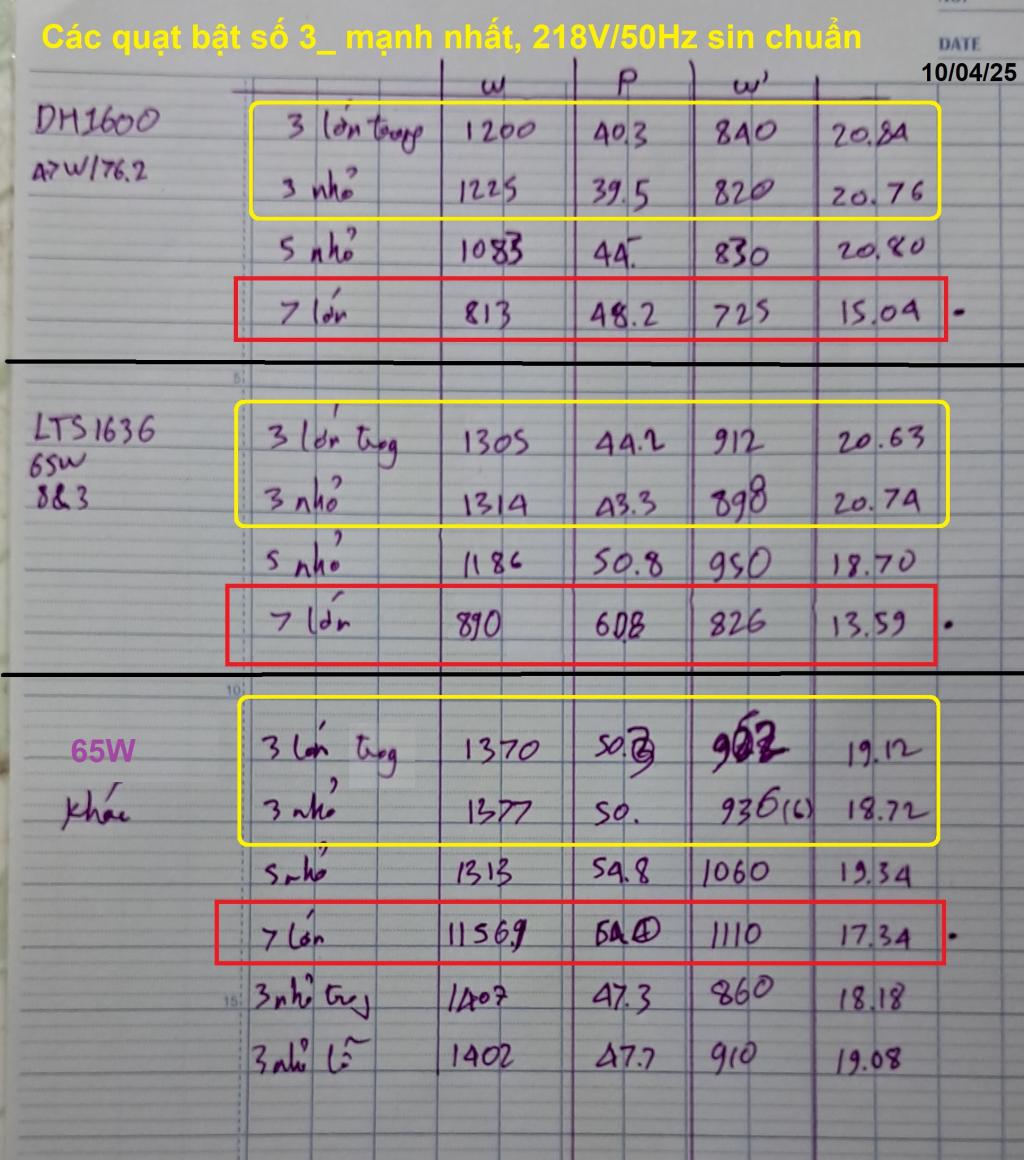 Các quạt bật số 3_ mạnh nhất, 218V/50Hz sin chuẩn
DATE
10/04/25
w P w'
DH1600 3 lớn trong 1200 40.3 840 20.84
47W/76.2 3 nhỏ 1225 39.5 820 20.76
5 nhỏ 1083 44. 830 20.80
7 lớn 813 48.2 725 15.04 .
LTS1636 3 lớn trog 1305 44.2 912 20.63
65W
8&3 3 nhỏ 1314 43.3 898 20.74
5 nhỏ 1186 50.8 950 18.70
7 lớn 890 60.8 826 13.59 .
10
65W 3 lớn trog 1370 50.3 962 19.12
khác 3 nhỏ 1377 50. 936(6) 18.72
5 nhỏ 1313 54.8 1060 19.34
7 lớn 1156 1110 17.34 .
15 3 nhỏ trg 1407 47.3 860 18.18
3 nhỏ lẽ 1402 47.7 910 19.08